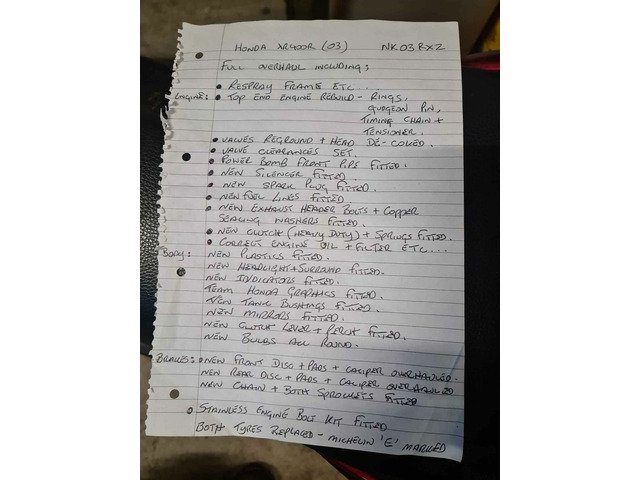 HONDA XR400R (03) NK03RXZ
FULL OVERHAUL INCLUDING:
• RESPRAY FRAME ETC...
ENGINE: • TOP END ENGINE REBUILD - RINGS,
GUDGEON PIN,
TIMING CHAIN +
TENSIONER.
• VALVES REGROUND + HEAD DE-COKED.
• VALVE CLEARANCES SET.
• POWER BOMB FRONT PIPS FITTED.
• NEW SILENCER FITTED.
• NEW SPARK PLUG FITTED.
• NEW FUEL LINES FITTED
• NEW EXHAUST HEADER BOLTS + COPPER
SEALING WASHERS FITTED.
• NEW CLUTCH (HEAVY DUTY) + SPRINGS FITTED.
• CORRECT ENGINE OIL + FILTER ETC...
BODY: NEW PLASTICS FITTED.
NEW HEADLIGHT + SURROUND FITTED.
NEW INDICATORS FITTED.
TEAM HONDA GRAPHICS FITTED.
NEW TANK BUSHINGS FITTED.
NEW MIRRORS FITTED.
NEW CLUTCH LEVER + PERCH FITTED.
NEW BULBS ALL ROUND.
BRAKES: • NEW FRONT DISC + PADS + CALIPER OVERHAULED.
NEW REAR DISC + PADS + CALIPER OVERHAULED
NEW CHAIN + BOTH SPROCKETS FITTED
• STAINLESS ENGINE BOLT KIT FITTED
BOTH TYRES REPLACED - MICHELIN 'E' MARKED